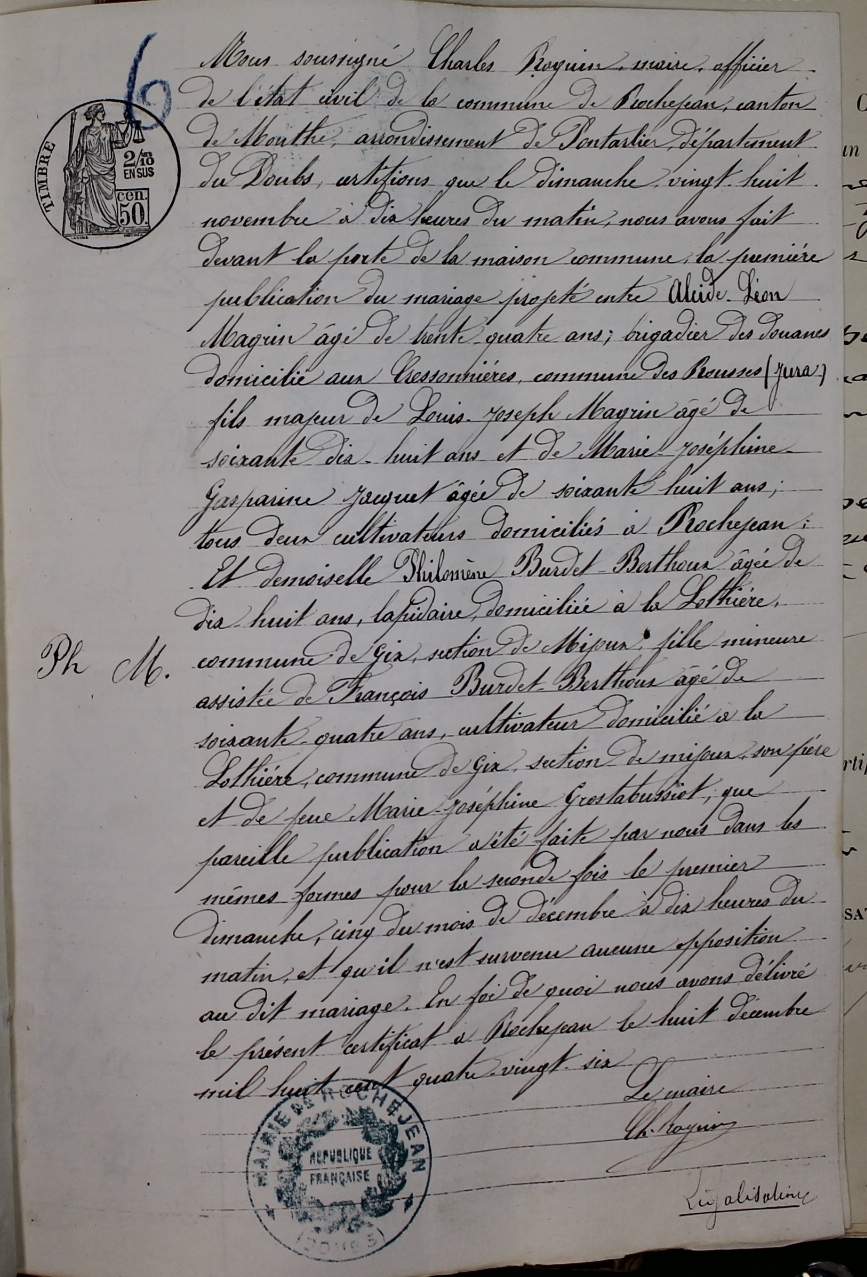 6
TIMBRE
2/10
EN SUS
cen.
50.
Nous soussigné Charles Roguin, maire, officier
de l'état civil de la commune de Rochejean, canton
de Mouthe, arrondissement de Pontarlier, département
du Doubs, certifions que le dimanche vingt huit
novembre à dix heures du matin, nous avons fait
devant la porte de la maison commune, la première
publication du mariage projeté entre Alcide-Léon
Magnin âgé de trente quatre ans; brigadier des douanes
domicilié aux Cressonnières, commune des Rousses (Jura)
fils majeur de Louis-Joseph Magnin âgé de
soixante dix-huit ans et de Marie-Joséphine-
Gasparine Jacquet âgée de soixante huit ans;
tous deux cultivateurs domiciliés à Rochejean;
Et demoiselle Philomène Burdet-Berthoux âgée de
dix huit ans, lapidaire, domiciliée à la Lothière,
commune de Gex, section de Mijoux, fille mineure
Ph M.
assistée de François Burdet-Berthoux âgé de
soixante-quatre ans, cultivateur domicilié à la
Lothière, commune de Gex, section de mijoux, son père
et de feue Marie-Joséphine Grostabussiot, que
pareille publication a été faite par nous dans les
mêmes formes pour la seconde fois le premier
dimanche, cinq du mois de décembre à dix heures du
matin, et qu'il n'est survenu aucune opposition
au dit mariage. En foi de quoi nous avons délivré
le présent certificat à Rochejean le huit décembre
mil huit cent quatre-vingt-six
Le maire
Ch. Roguin
MAIRIE DE ROCHEJEAN
RÉPUBLIQUE
FRANÇAISE
(DOUBS)
Légalisation